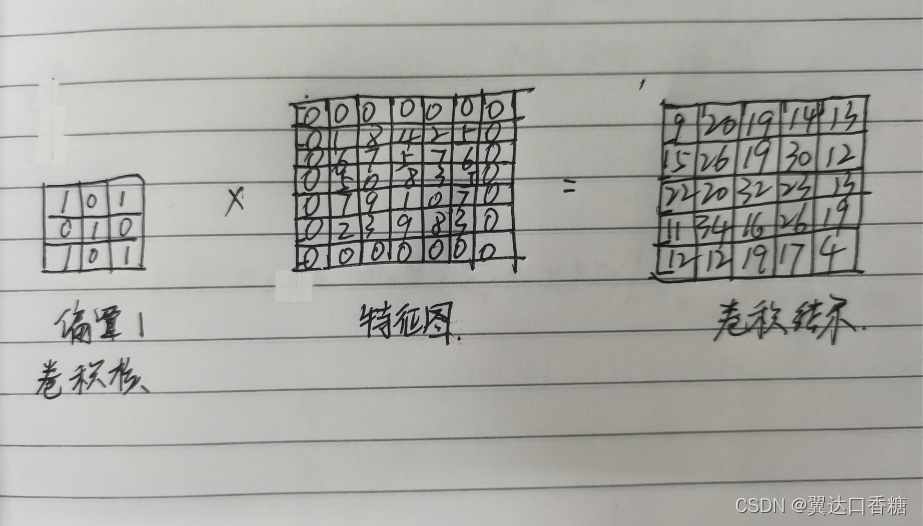 1 0 1
0 1 0
1 0 1
×
0 0 0 0 0 0 0
0 1 8 4 2 5 0
0 6 7 5 7 6 0
0 5 0 8 3 5 0
0 7 9 1 0 7 0
0 2 3 9 8 3 0
0 0 0 0 0 0 0
=
9 20 19 14 13
15 26 19 30 12
22 20 32 23 13
11 34 16 26 19
12 12 19 17 4
偏置1
卷积核
特征图.
卷积结果.
CSDN @翼达口香糖